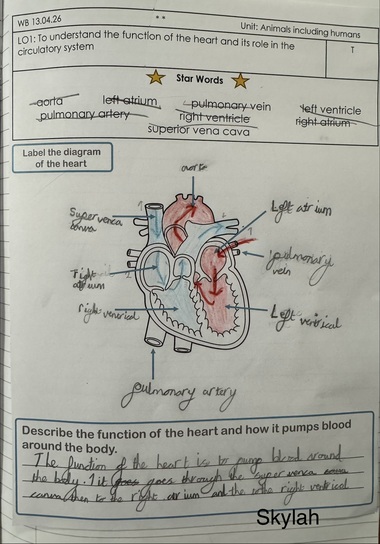 WB 13.04.26
Unit: Animals including humans
LO1: To understand the function of the heart and its role in the circulatory system
T
Star Words
aorta left atrium pulmonary vein left ventricle
pulmonary artery right ventricle right atrium
superior vena cava
Label the diagram
of the heart
aorta
Left atrium
Super venca
canva
pulmonary
vein
right
atrium
right venrical
Left venrical
pulmonary artery
Describe the function of the heart and how it pumps blood
around the body.
The function of the heart is to pump blood around
the body. 1 it goes through the super venca
canva then to the right atrium and the to the right venrical
Skylah